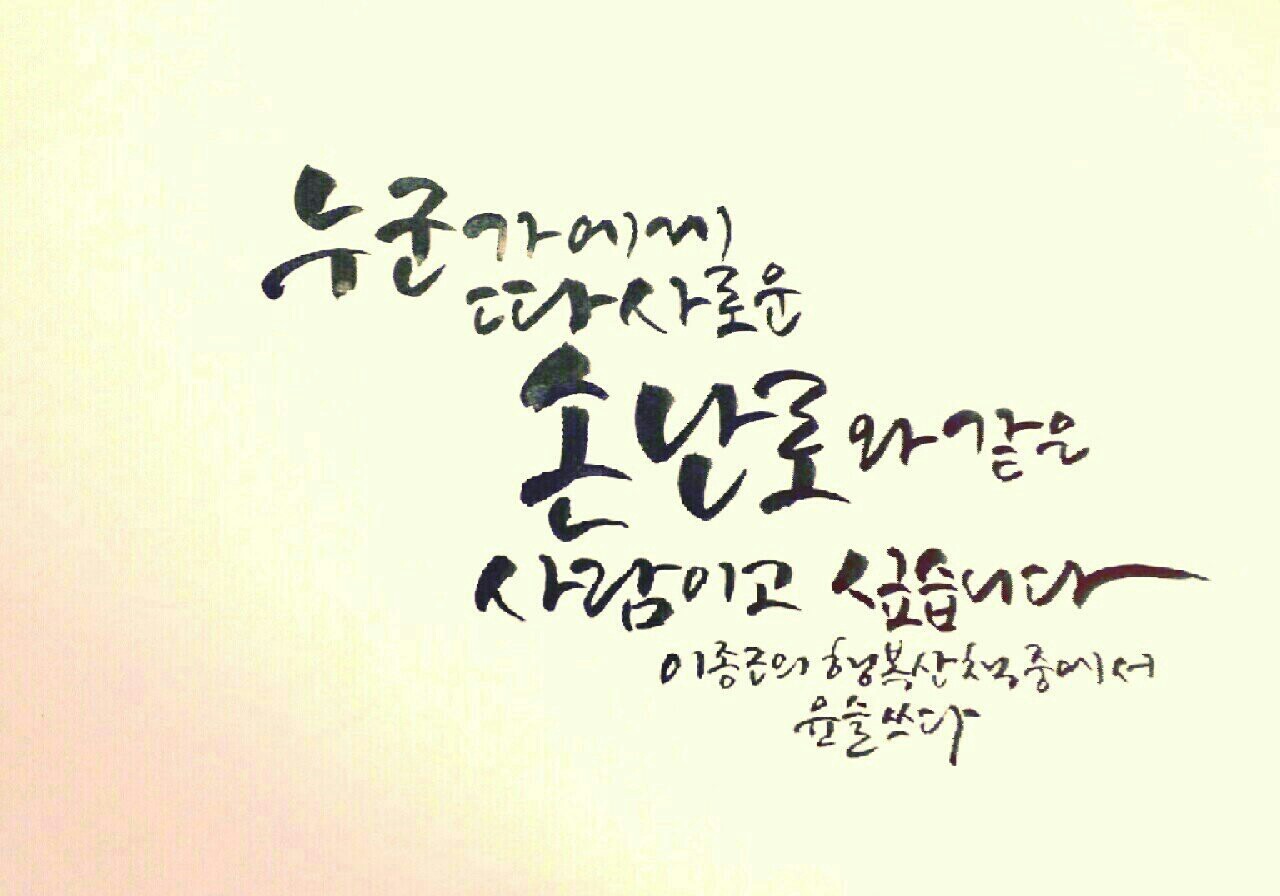 누군가에게
따사로운
손난로와 같은
사람이고 싶습니다
이종근의 행복산책 중에서
윤슬 쓰다